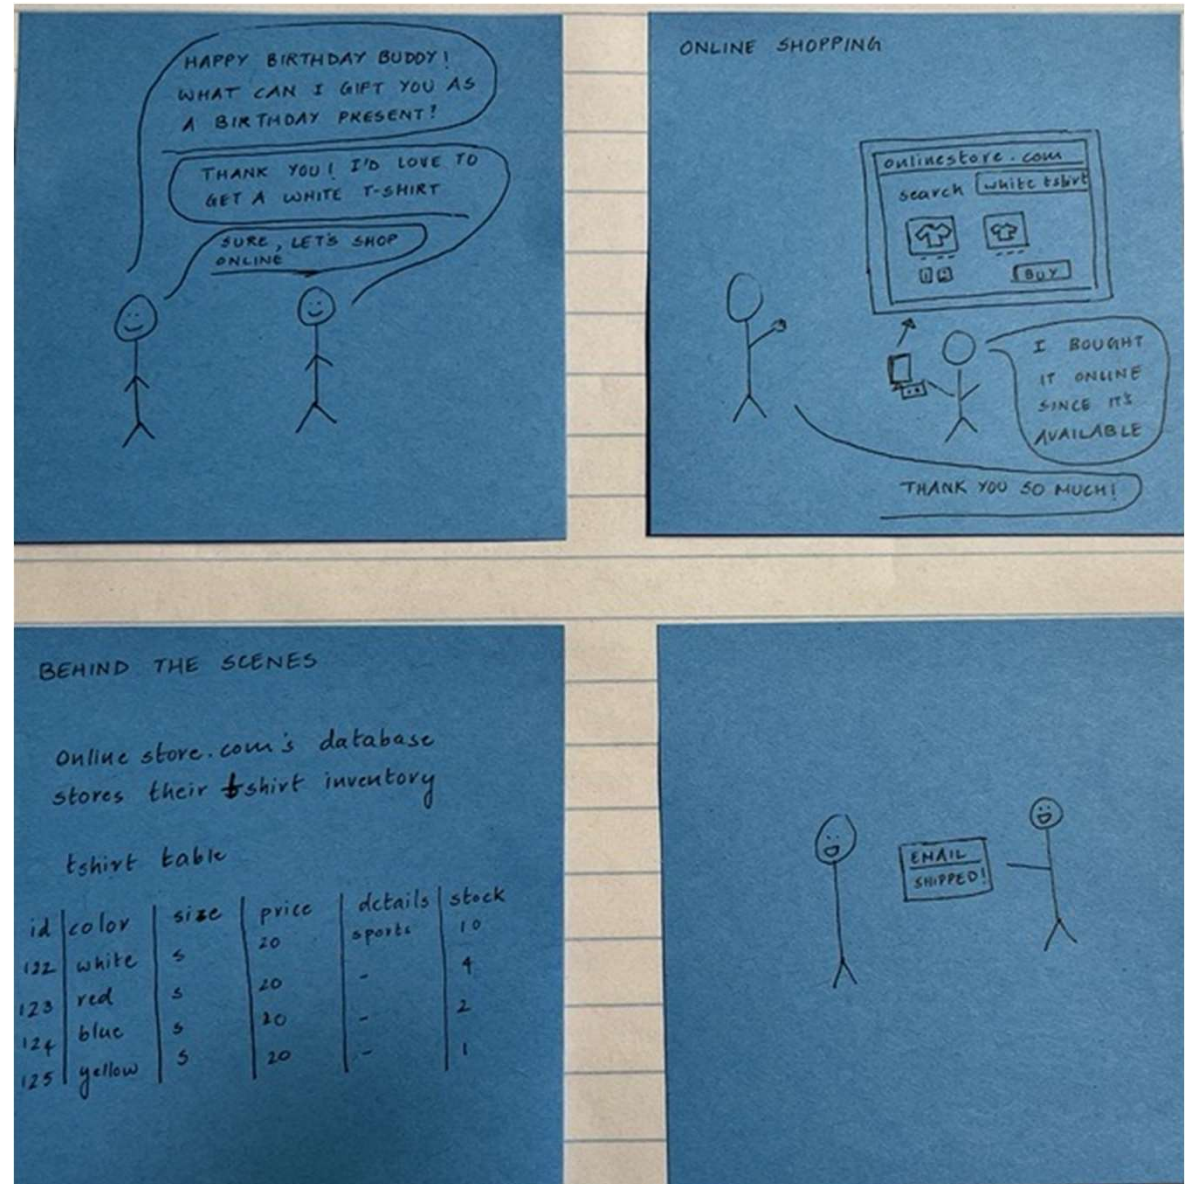 HAPPY BIRTHDAY BUDDY!
WHAT CAN I GIFT YOU AS
A BIRTHDAY PRESENT?
THANK YOU! I'D LOVE TO
GET A WHITE T-SHIRT
SURE, LET'S SHOP
ONLINE
ONLINE SHOPPING
onlinestore.com
search white tshirt
BUY
I BOUGHT
IT ONLINE
SINCE IT'S
AVAILABLE
THANK YOU SO MUCH!
BEHIND THE SCENES
Online store.com's database
stores their tshirt inventory
tshirt table
id color size price details stock
122 white s 20 sports 10
123 red s 20 - 4
124 blue s 20 - 2
125 yellow s 20 - 1
EMAIL
SHIPPED!